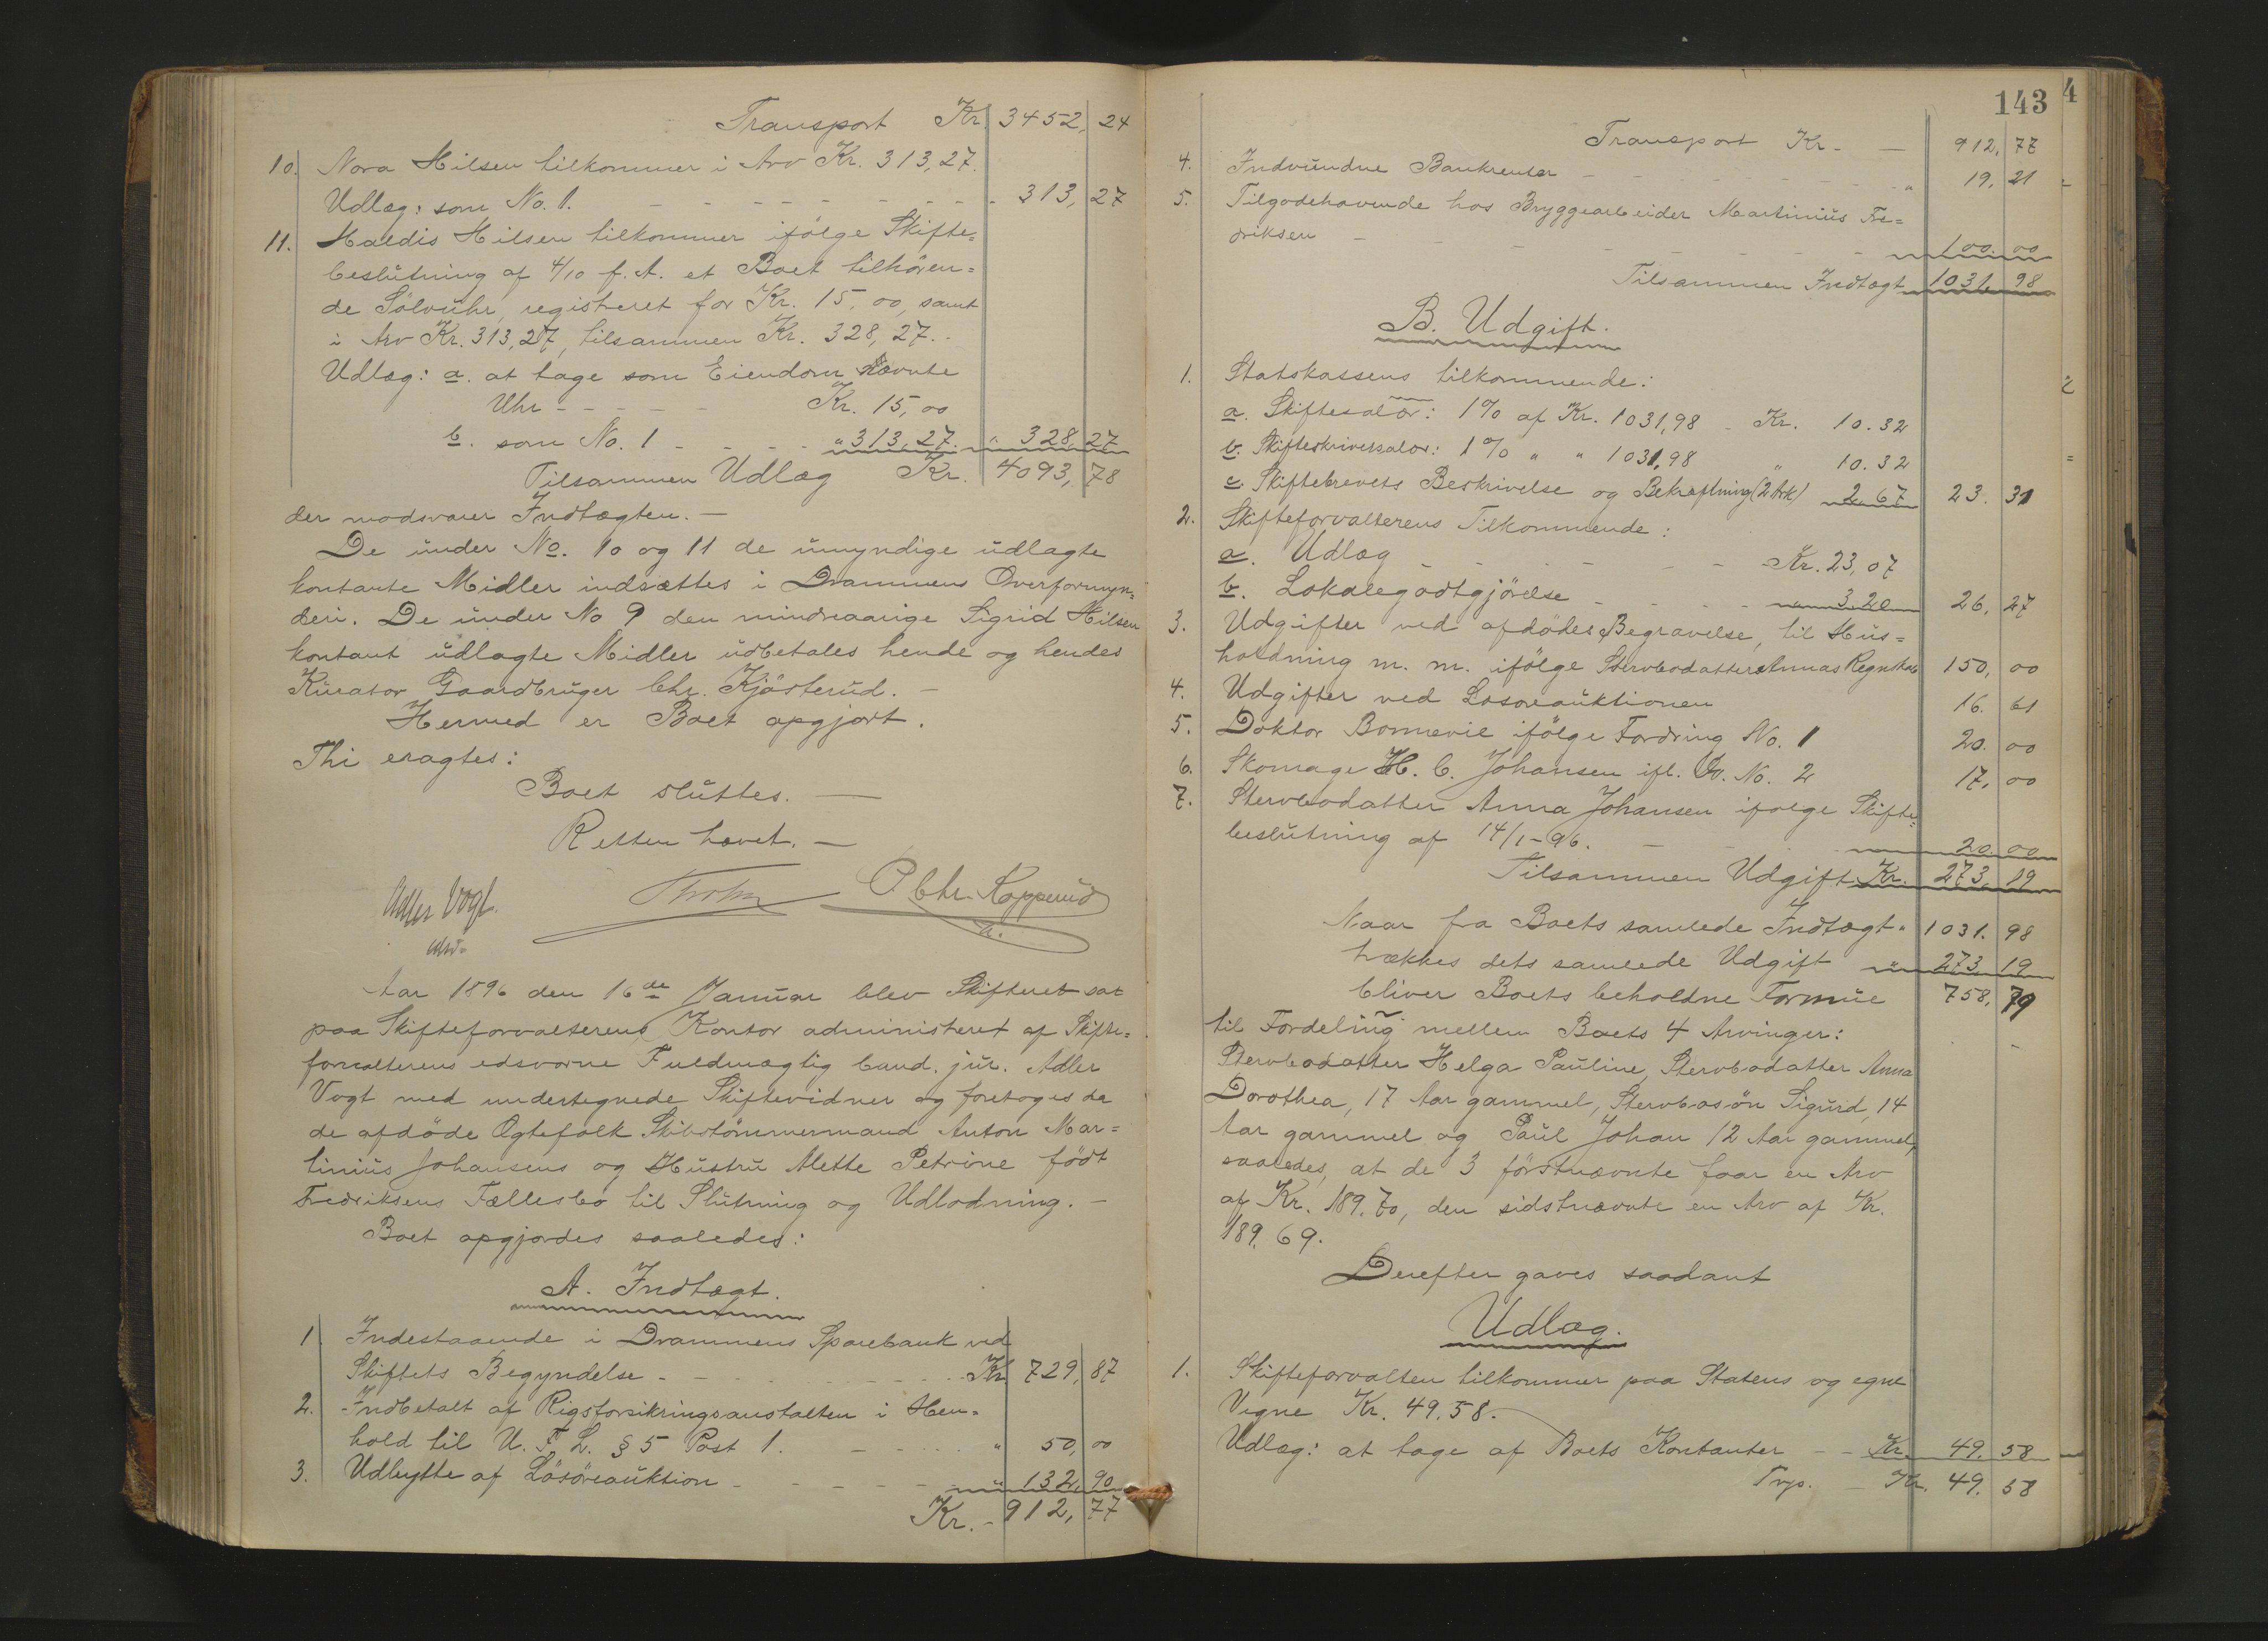 Transport Kr. 3452,24
10. Nora Hilsen tilkommer i Arv Kr. 313,27.
Udlæg: som No. 1. - - - - - - - - 313,27
11. Haldis Hilsen tilkommer ifølge Skifte=
beslutning af 4/10 f. A. et Boet tilhören=
de Sölvuhr, registreret for Kr. 15,00, samt
i Arv Kr. 313,27, tilsammen Kr. 328,27.
Udlæg: a. at tage som Eiendom nævnte
Uhr - - - - - Kr. 15,00
b. som No. 1 - - - - " 313,27. " 328,27
Tilsammen Udlæg Kr. 4093,78
der modsvarer Indtægten. -
De under No. 10 og 11 de umyndige udlagte
kontante Midler indsættes i Drammens Overformyn=
deri. De under No 9 den mindreaarige Sigrid Hilsen
kontant udlagte Midler udbetales hende og hendes
Kurator Gaardbruger Chr. Kjösterud. -
Hermed er Boet opgjort.
Thi eragtes:
Boet sluttes. -
Retten hævet. -
Adler Vogt. Thohn P. Chr. Kopperud
edsv=
Aar 1896 den 16de Januar blev Skifteret sat
paa Skifteforvalterens Kontor administreret af Skifte=
forvalterens edsvorne Fuldmægtig Cand. jur. Adler
Vogt med undertegnede Skiftevidner og foretoges da
de afdöde Ægtefolk Skibstömmermand Anton Mar=
tinius Johansens og Hustru Alette Petrine födt
Fredriksens Fællesbo til Slutning og Udlodning. -
Boet opgjordes saaledes:
A. Indtægt.
1 Indestaaende i Drammens Sparebank ved
Skiftets Begyndelse - - - - - - Kr 729,87
2. Indbetalt af Rigsforsikringsanstalten i Hen=
hold til U. F. L. § 5 Post 1. - - - " 50,00
3. Udbytte af Lösöreauktion - - - - - " 132,90
Kr. - 912,77
143 4
Transport Kr. - 912,77
4. Indvundne Bankrenter - - - - - - " 19,21
5. Tilgodehavende hos Bryggearbeider Martinius Fre=
driksen - - - - - - 100.00
Tilsammen Indtægt 1031.98
B. Udgift.
1. Statskassens tilkommende:
a. Skiftesalær: 1% af Kr. 1031,98 - Kr. 10.32
b. Skifteskriversalær: 1% " " 1031,98 " 10.32
c. Skiftebrevets Beskrivelse og Bekræftning (2 Ark) 2.67 23.31
2. Skifteforvalterens Tilkommende:
a. Udlæg - - - - - Kr. 23,07
b. Lokalegodtgjörelse - - - - 3.20 26,27
3. Udgifter ved afdödes Begravelse, til Hus=
holdning m. m. ifölge Stervbodatteren Annas Regnskab 150,00
4. Udgifter ved Løsøreauktionen 16.61
5. Doktor Bonnevie ifölge Fordring No. 1 20.00
6. Skomager H. C. Johansen ifl. Fo. No. 2 17,00
7. Stervbodatter Anna Johansen ifølge Skifte=
beslutning af 14/1-96. - 20.00
Tilsammen Udgift Kr. 273.19
Naar fra Boets samlede Indtægt " 1031.98
trækkes dets samlede Udgift " 273.19
bliver Boets beholdne Formue 758,79
til Fordeling mellem Boets 4 Arvinger:
Stervbodatter Helga Pauline, Stervbodatter Anna
Dorothea, 17 Aar gammel, Stervbosön Sigurd, 14
Aar gammel og Paul Johan 12 Aar gammel,
saaledes, at de 3 förstnævnte faar en Arv
af Kr. 189.70, den sidstnævnte en Arv af Kr.
189.69.
Derefter gaves saadant
Udlæg.
1. Skifteforvalten tilkommer paa Statens og egne
Vegne Kr. 49.58.
Udlæg: at tage af Boets Kontanter - - Kr. 49.58
Trp. - Kr. 49.58